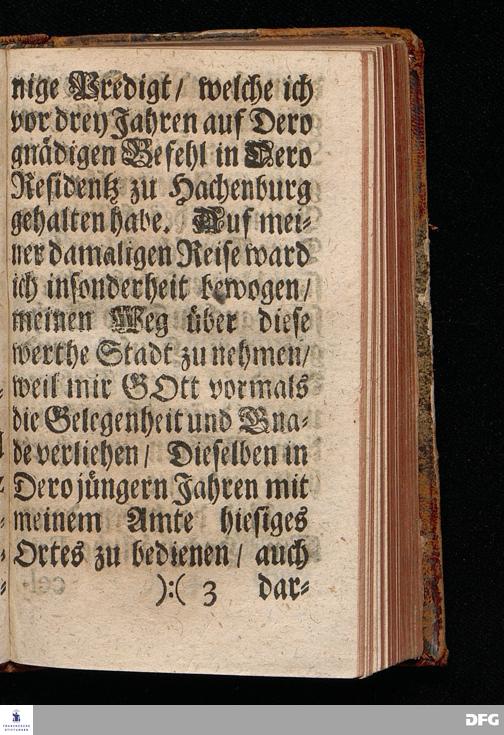 nige Predigt/ welche ich
vor drey Jahren auf Dero
gnädigen Befehl in Dero
Residentz zu Hachenburg
gehalten habe. Auf mei-
ner damaligen Reise ward
ich insonderheit bewogen/
meinen Weg über diese
werthe Stadt zu nehmen/
weil mir GOtt vormals
die Gelegenheit und Gna-
de verliehen/ Dieselben in
Dero jüngern Jahren mit
meinem Amte hiesiges
Ortes zu bedienen/ auch
):( 3 dar-
FRANCKESCHE
STIFTUNGEN
DFG